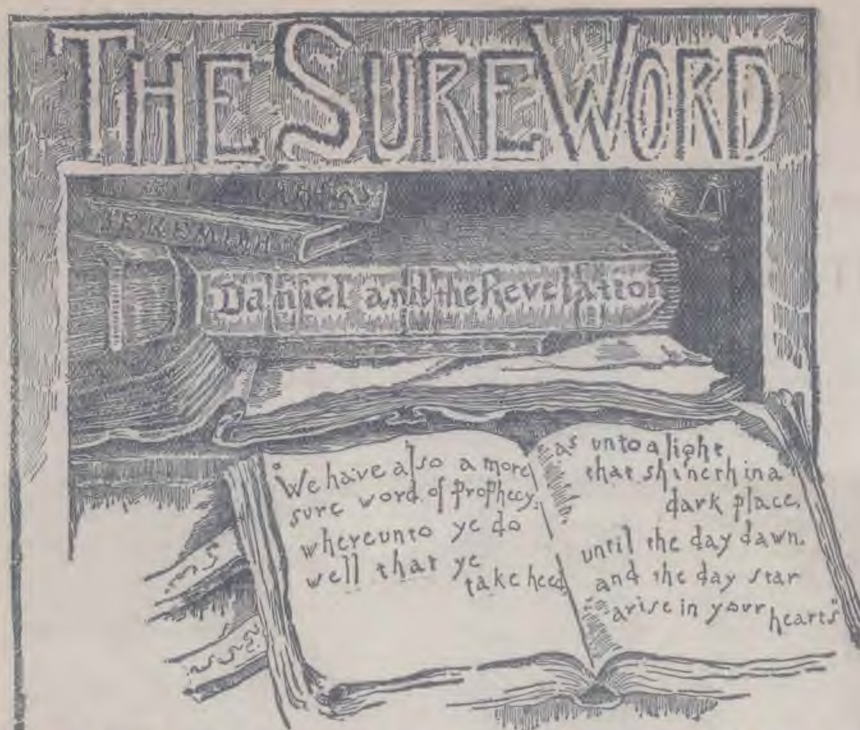 THE SURE WORD
JEREMIAH
Daniel and the Revelation
"We have also a more
sure word of prophecy,
whereunto ye do
well that ye
take heed
as unto a light
that shineth in a
dark place,
until the day dawn,
and the day star
arise in your hearts"